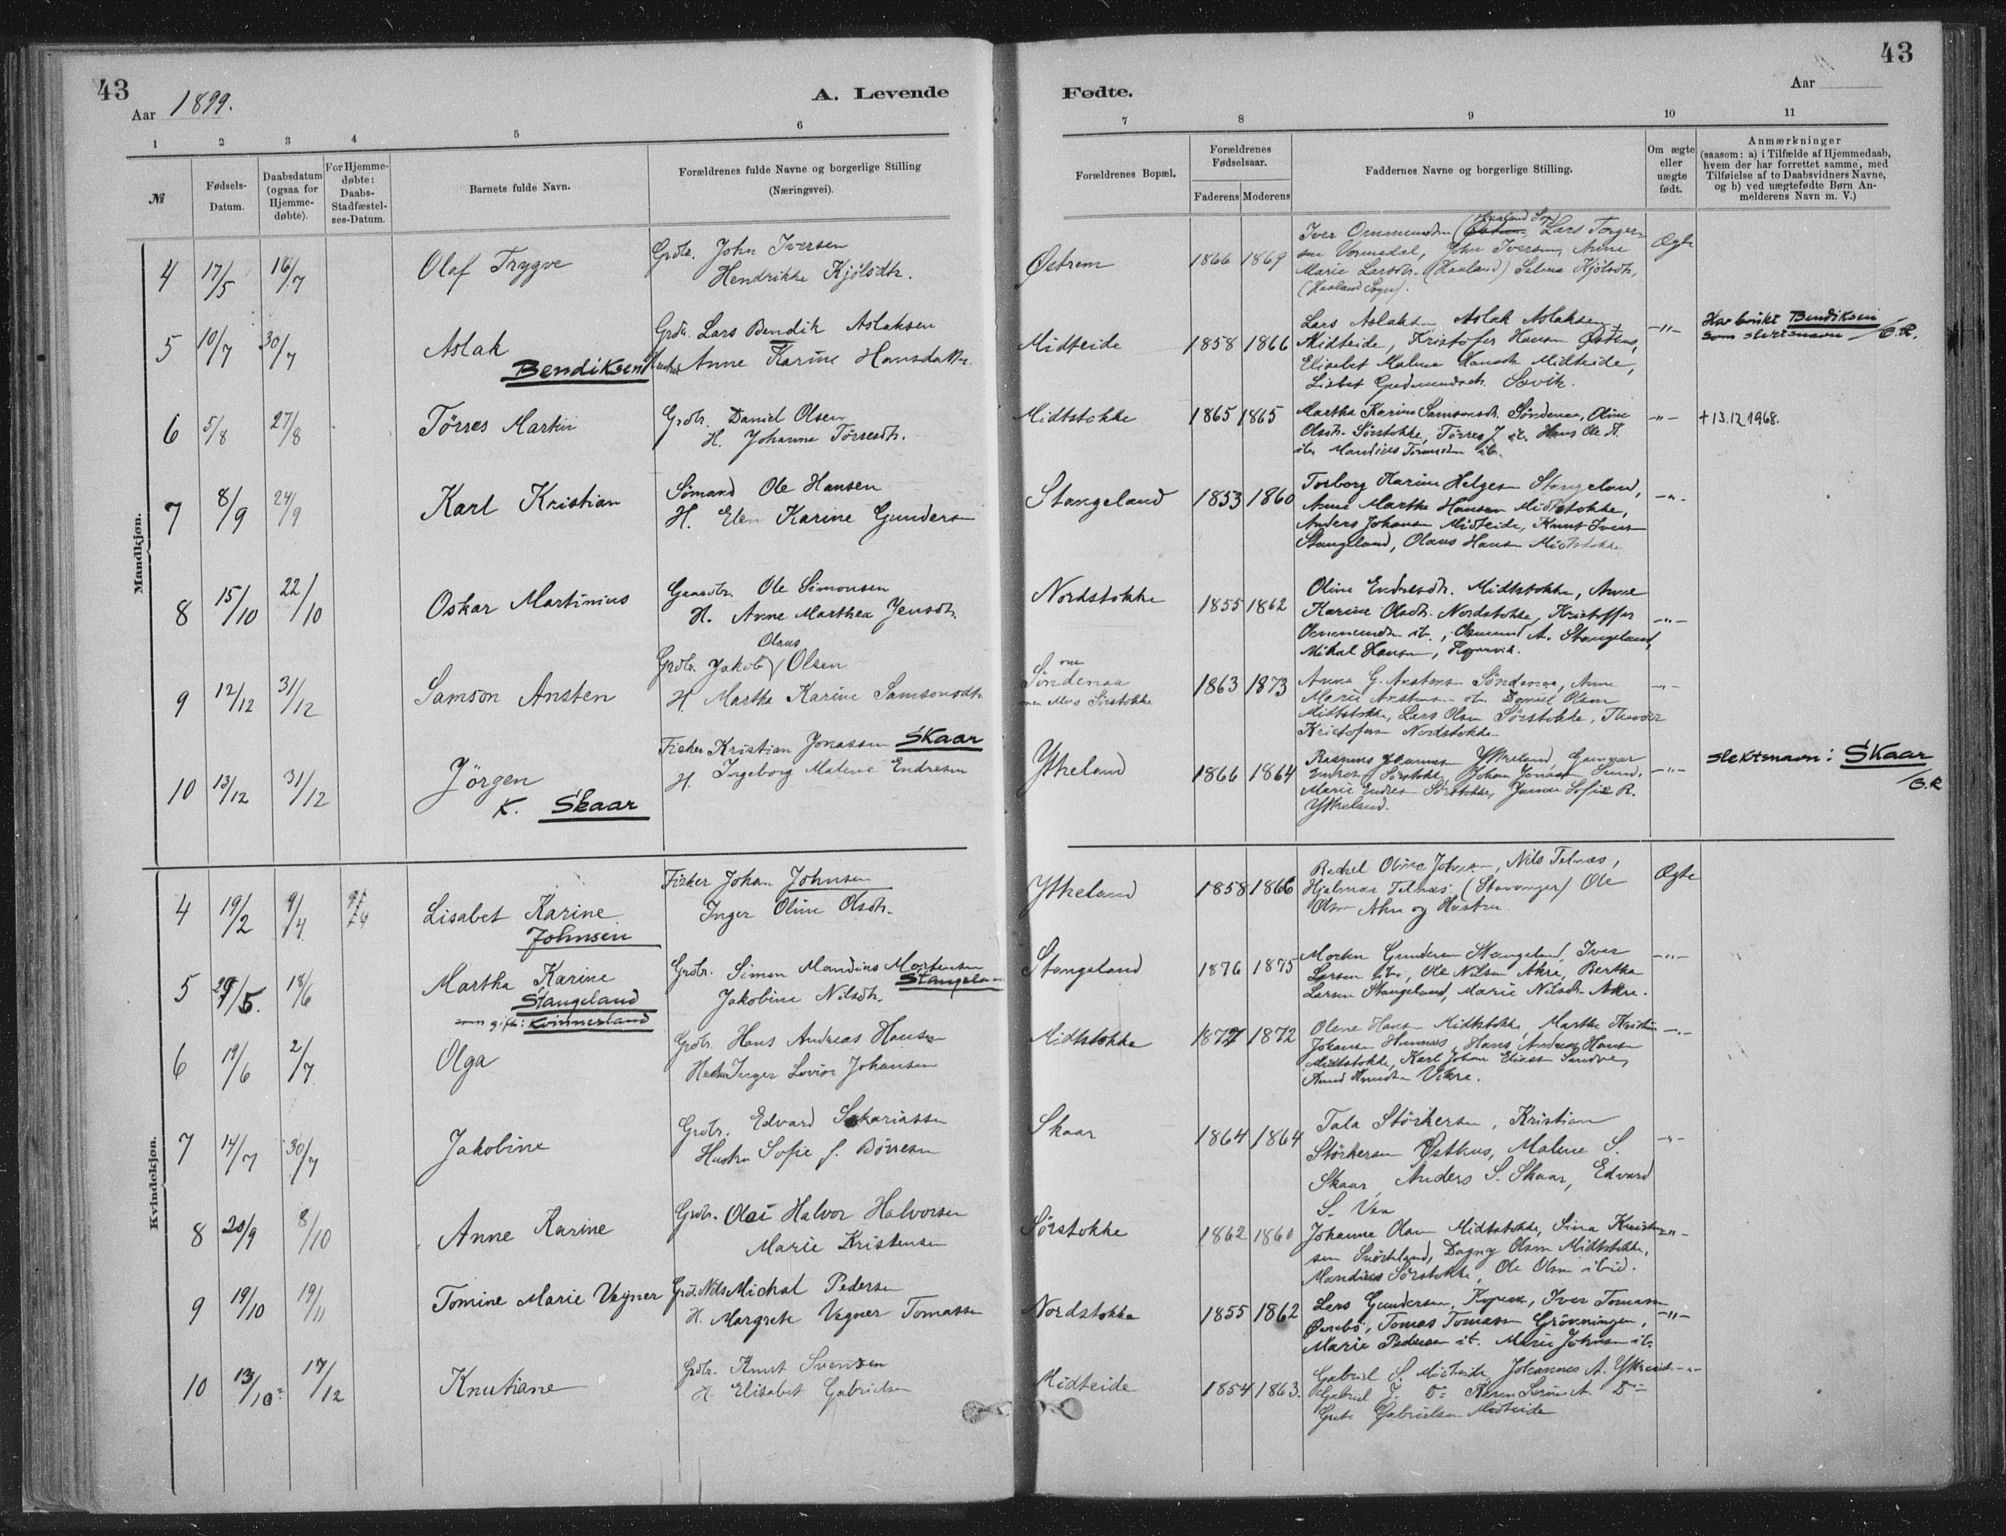 43
Aar 1899.
A. Levende
Fødte.
Aar
43
1 2 3 4 5 6 7 8 9 10 11
№
Fødsels-
Datum.
Daabsdatum
(ogsaa for
Hjemme-
døbte).
For Hjemme-
døbte:
Daabs-
Stadfæstel-
ses-Datum.
Barnets fulde Navn.
Forældrenes fulde Navne og borgerlige Stilling
(Næringsvei).
Forældrenes Bopæl.
Forældrenes
Fødselsaar.
Faderens Moderens
Faddernes Navne og borgerlige Stilling.
Om ægte
eller
uægte
født.
Anmærkninger
(saasom: a) i Tilfælde af Hjemmedaab,
hvem der har forrettet samme, med
Tilføielse af to Daabsvidners Navne,
og b) ved uægtefødte Børn An-
melderens Navn m. V.)
Mandkjøn.
4 17/5 16/7 Olaf Trygve
Grdbr. John Iversen
Hendrikke Kjølsdtr.
Østrem 1866 1869
Iver Ommundsen Lars Torger-
sen Vormedal, John Iversen, Anne
Marie Larsdtr. (Haaland) Selma Kjølsdtr,
(Haaland Sogn).
Ægte
5 10/7 30/7 Aslak
Bendiksen
Grdbr. Lars Bendik Aslaksen
Hustru Anne Karine Hansdatter.
Midteide 1858 1866
Lars Aslaksen Aslak Aslaksen
Midteide, Kristofer Hansen Østhus,
Elisabet Malene Hansdtr Midteide,
Lisbet Gudmundsdtr. Sævik.
-"-
Har brukt Bendiksen
som slektsnavn /G.R.
6 5/8 27/8 Tørres Martin
Grdbr. Daniel Olsen
H. Johanne Tørresdtr.
Midtstokke 1865 1865
Martha Karine Samsonsdtr. Søndenaa, Oline
Olsdtr. Sørstokke, Tørres J. ib. Hans Ole
ib. Mandius ib.
-"-
+13.12.1968.
7 8/9 24/9 Karl Kristian
Sømand Ole Hansen
H. Elen Karine Gundersen
Stangeland 1853 1860
Torborg Karine Helgesen Stangeland,
Anne Martha Hansen Midtstokke,
Anders Johansen Midteide, Knut Iversen
Stangeland, Olaus Hansen Midtstokke
-"-
8 15/10 22/10 Oskar Martinius
Gaardbr. Ole Simonsen
H. Anne Marthea Jensdtr.
Nordstokke 1855 1862
Oline Endresdtr. Midtstokke, Anne
Karine Olsdtr. Nordstokke, Kristoffer
Ommundsen ib., Osmund A. Stangeland,
Mikal Hansen,
-"-
9 12/12 31/12 Samson Ansten
Olaus
Grdbr. Jakob V Olsen
H Martha Karine Samsonsdtr
Søndenaa
Sørstokke
1863 1873
Anna G. Anstensen Søndenaa, Anne
Marie Anstensen ib. Daniel Olsen
Midtstokke, Lars Olsen Sørstokke, Theodor
Kristofersen Nordstokke
-"-
10 13/12 31/12 Jörgen
K. Skaar
Fisker Kristian Jonassen Skaar
H. Ingeborg Malene Endresen
Ytreland 1866 1864
Rasmus Ytreland, Gunnar
Endresen Sørstokke, Johan Jonassen Sund,
Marie Endresen Sørstokke, Sofie R.
Ytreland.
-"-
slektsnavn: Skaar
/G.R
Kvindekjøn.
4 19/2 9/4 9/4 Lisabet Karine
Johnsen
Fisker Johan Johnsen
Inger Oline Olsdtr.
Ytreland 1858 1866
Rachel Oline Johnsen, Nils Telnæs,
Hjalmar Telnæs (Stavanger) Ole
Olsen Akre og Hustru
Ægte
5 29/5. 18/6 Martha Karine
Stangeland
som gift: Kvinnerland
Grdbr. Simon Mandius Mortensen
Stangeland
Jakobine Nilsdtr.
Stangeland 1876 1875
Morten Gundersen Stangeland, Iver
Larsen ib., Ole Nilsen Akre, Bertha
Larsen Stangeland, Marie Nilsdtr. Akre.
-"-
6 19/6 2/7 Olga
Grdbr. Hans Andreas Hansen
Hustru Inger Lovise Johansen
Midtstokke 1872 1872
Olene Hansen Midtstokke, Marthe Kristine
Johansen Hemnes, Hans Andreas Hansen
Midtstokke, Karl Johan Eliassen Sandve,
Knud Knudsen Vikre.
-"-
7 14/7 30/7 Jakobine
Grdbr. Edvard Sakariassen
Hustru Sofie J. Børresen
Skaar 1864 1864
Tala Størkersen, Kristian
Størkersen Østhus, Malene S.
Skaar, Anders S. Skaar, Edvard
S. Vea
-"-
8 20/9 8/10 Anne Karine
Grdbr. Olai Halvor Halvorsen
Marie Kristensen
Sørstokke 1862 1860
Johanne Olsen Midtstokke, Sina Knudsen
sen Snørteland, Dagny Olsen Midtstokke,
Mandius Sørstokke, Ole Olsen ibid.
-"-
9 19/10 19/11 Tomine Marie Vagner
Grdbr. Nils Michal Pedersen
H. Margrete Vagner Tomassen
Nordstokke 1855 1862
Lars Gundersen, Iver Tomassen
Øvrebø, Tomas Tomassen Grönningen,
Marie Pedersen ib. Marie Johnsen ib.
-"-
10 13/10 17/12 Knutiane
Grdbr. Knut Svensen
H Elisabet Gabrielsen
Midteide 1854 1863.
Gabriel S. Midteide, Johannes A. Ytreland
Gabriel J. Do Karen Serine A. Do
Grete Gabrielsen Midteide
-"-